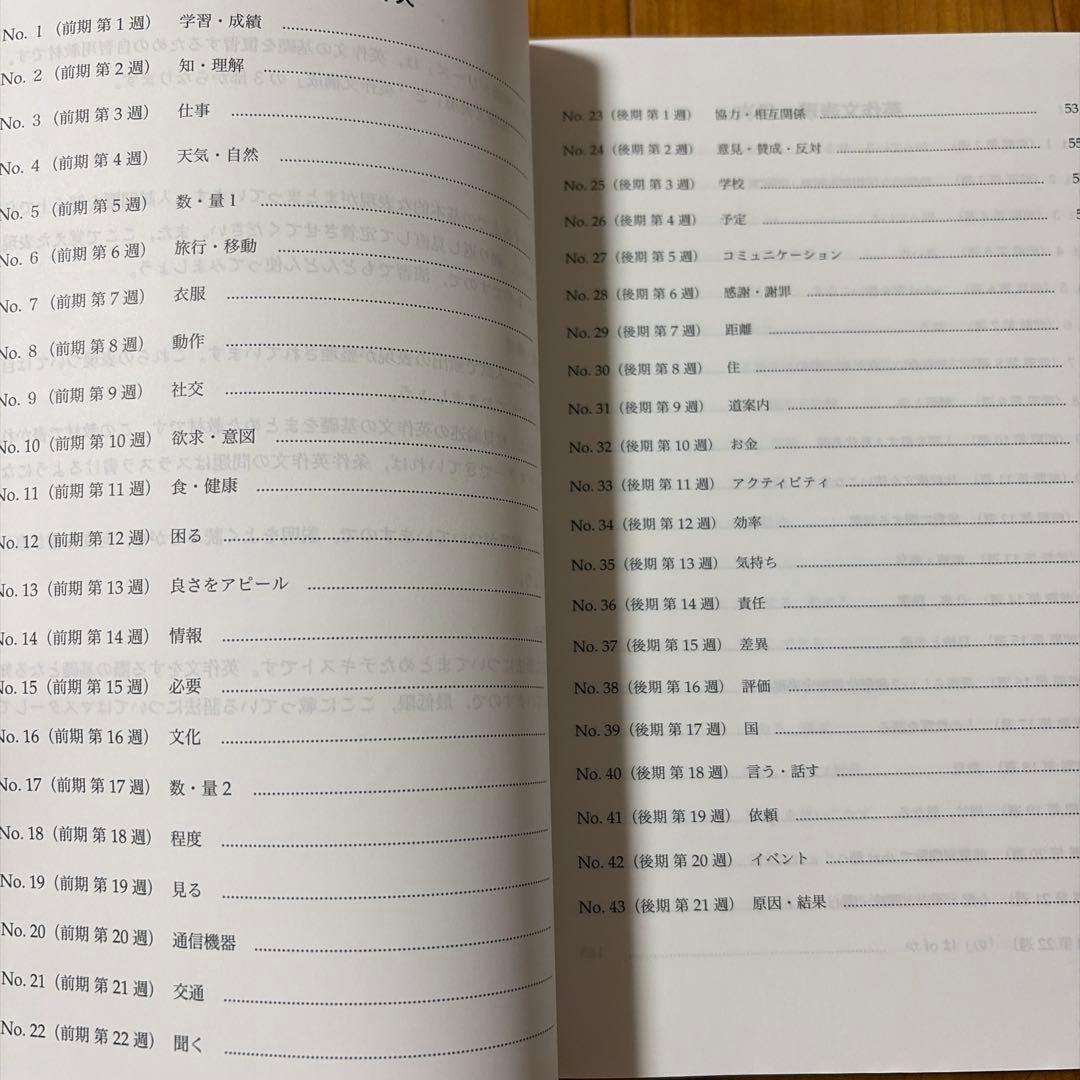 No. 1（前期 第 1 週） 学習・成績
No. 2（前期 第 2 週） 知・理解
No. 3（前期 第 3 週） 仕事
No. 4（前期 第 4 週） 天気・自然
No. 5（前期 第 5 週） 数・量 1
No. 6（前期 第 6 週） 旅行・移動
No. 7（前期 第 7 週） 衣服
No. 8（前期 第 8 週） 動作
No. 9（前期 第 9 週） 社交
No. 10（前期 第 10 週） 欲求・意図
No. 11（前期 第 11 週） 食・健康
No. 12（前期 第 12 週） 困る
No. 13（前期 第 13 週） 良さをアピール
No. 14（前期 第 14 週） 情報
No. 15（前期 第 15 週） 必要
No. 16（前期 第 16 週） 文化
No. 17（前期 第 17 週） 数・量 2
No. 18（前期 第 18 週） 程度
No. 19（前期 第 19 週） 見る
No. 20（前期 第 20 週） 通信機器
No. 21（前期 第 21 週） 交通
No. 22（前期 第 22 週） 聞く
No. 23（後期 第 1 週） 協力・相互関係 53
No. 24（後期 第 2 週） 意見・賛成・反対 55
No. 25（後期 第 3 週） 学校
No. 26（後期 第 4 週） 予定
No. 27（後期 第 5 週） コミュニケーション
No. 28（後期 第 6 週） 感謝・謝罪
No. 29（後期 第 7 週） 距離
No. 30（後期 第 8 週） 住
No. 31（後期 第 9 週） 道案内
No. 32（後期 第 10 週） お金
No. 33（後期 第 11 週） アクティビティ
No. 34（後期 第 12 週） 効率
No. 35（後期 第 13 週） 気持ち
No. 36（後期 第 14 週） 責任
No. 37（後期 第 15 週） 差異
No. 38（後期 第 16 週） 評価
No. 39（後期 第 17 週） 国
No. 40（後期 第 18 週） 言う・話す
No. 41（後期 第 19 週） 依頼
No. 42（後期 第 20 週） イベント
No. 43（後期 第 21 週） 原因・結果